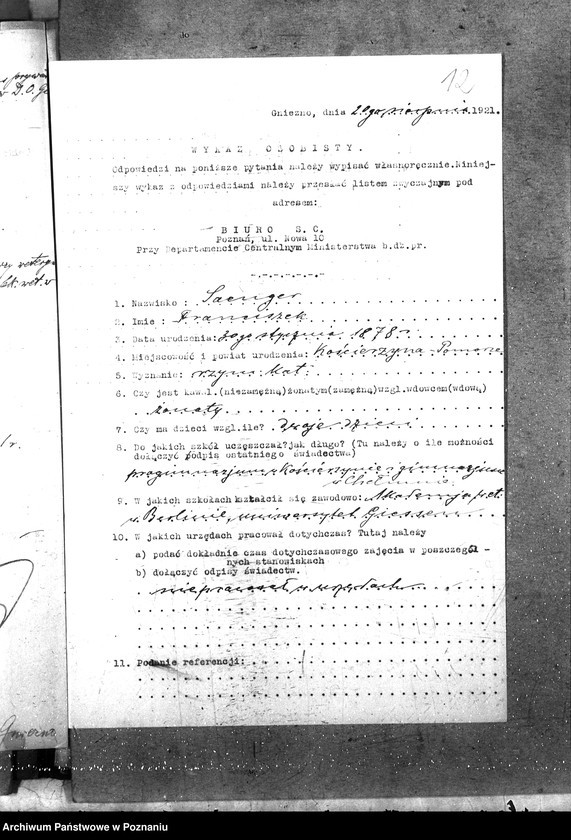 12
Gniezno, dnia 20go sierpnia 1921.
WYKAZ OSOBISTY.
Odpowiedzi na poniższe pytania należy wypisać własnoręcznie. Niniej-
szy wykaz z odpowiedziami należy przesłać listem zwyczajnym pod
adresem:
BIURO S.C.
Poznań, ul. Nowa 10
Przy Departamencie Centralnym Ministerstwa b.dz.pr.
1. Nazwisko : Saenger
2. Imię : Franciszek
3. Data urodzenia: 30go stycznia 1878 r
4. Miejscowość i powiat urodzenia: Kościerzyna Pomorze
5. Wyznanie: rzym. kat.
6. Czy jest kawal.(niezamężną)żonatym(zamężną)wzgl.wdowcem(wdową)
żonaty
7. Czy ma dzieci wzgl.ile? Dwoje dzieci
8. Do jakich szkół uczęszczał?jak długo? (Tu należy o ile możności
dołączyć odpis ostatniego świadectwa)
progimnazjum w Kościerzynie i gimnazjum
w Chełmnie
9. W jakich szkołach kształcił się zawodowo: Akademja wet.
w Berlinie, uniwersytet Giessen
10. W jakich urzędach pracował dotychczas? Tutaj należy
a) podać dokładnie czas dotychczasowego zajęcia w poszczegól -
nych stanowiskach
b) dołączyć odpisy świadectw.
nie pracował w urzędach
11. Podanie referencji:
Archiwum Państwowe w Poznaniu